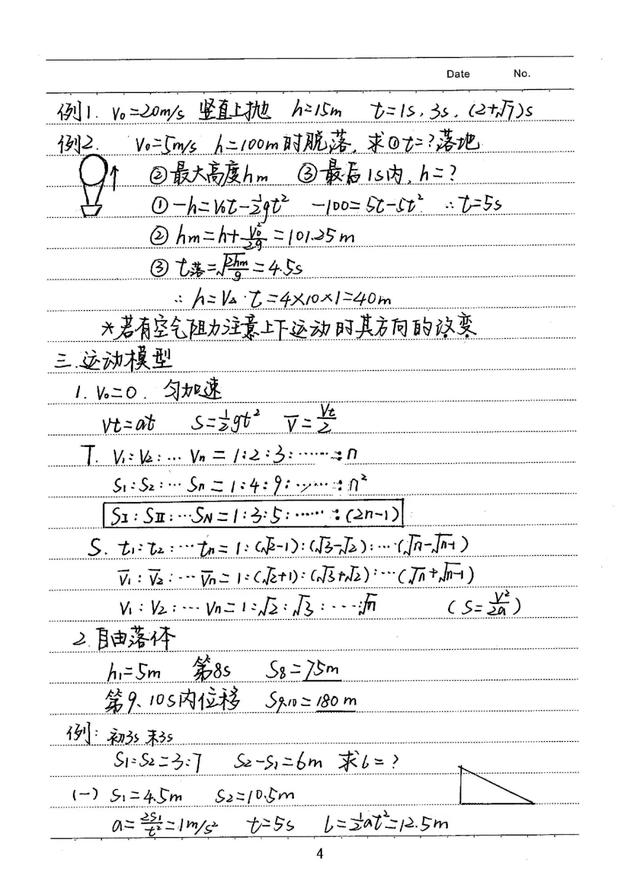 Date No.
例1. V₀=20m/s 竖直上抛 h=15m t=1s, 3s, (2+√7)s
例2. V₀=5m/s h=100m时脱落, 求①t=?落地
②最大高度hm ③最后1s内, h=?
①-h=V₀t-½gt² -100=5t-5t² ∴t=5s
②hm=h+V₀²/2g=101.25m
③t落=√(2hm/g)=4.5s
∴h=V·t=4×10×1=40m
*若有空气阻力注意上下运动时其方向的改变
三.运动模型
1. V₀=0. 匀加速
Vt=at S=½gt² V̄=Vt/2
T. V₁:V₂:…Vn=1:2:3:……:n
S₁:S₂:…Sn=1:4:9:……:n²
SⅠ:SⅡ:…SN=1:3:5:……:(2n-1)
S. t₁:t₂:…tn=1:(√2-1):(√3-√2):…(√n-√n-1)
V̄₁:V̄₂:…V̄n=1:(√2+1):(√3+√2):…(√n+√n-1)
V₁:V₂:…Vn=1:√2:√3:…√n (S=V²/2a)
2.自由落体
h₁=5m 第8s S₈=75m
第9、10s内位移 S₉,₁₀=180m
例: 初3s 末3s
S₁:S₂=3:7 S₂-S₁=6m 求L=?
(一) S₁=4.5m S₂=10.5m
a=2S₁/t²=1m/s² t=5s L=½at²=12.5m
4